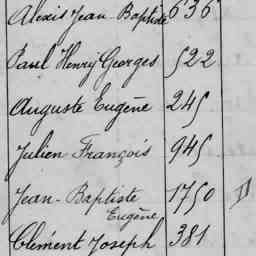 Alexis Jean Baptiste 636
Paul Henry Georges 522
Auguste Eugène 245
Julien François 945
Jean-Baptiste 1750 D
Eugène
Clément Joseph 381